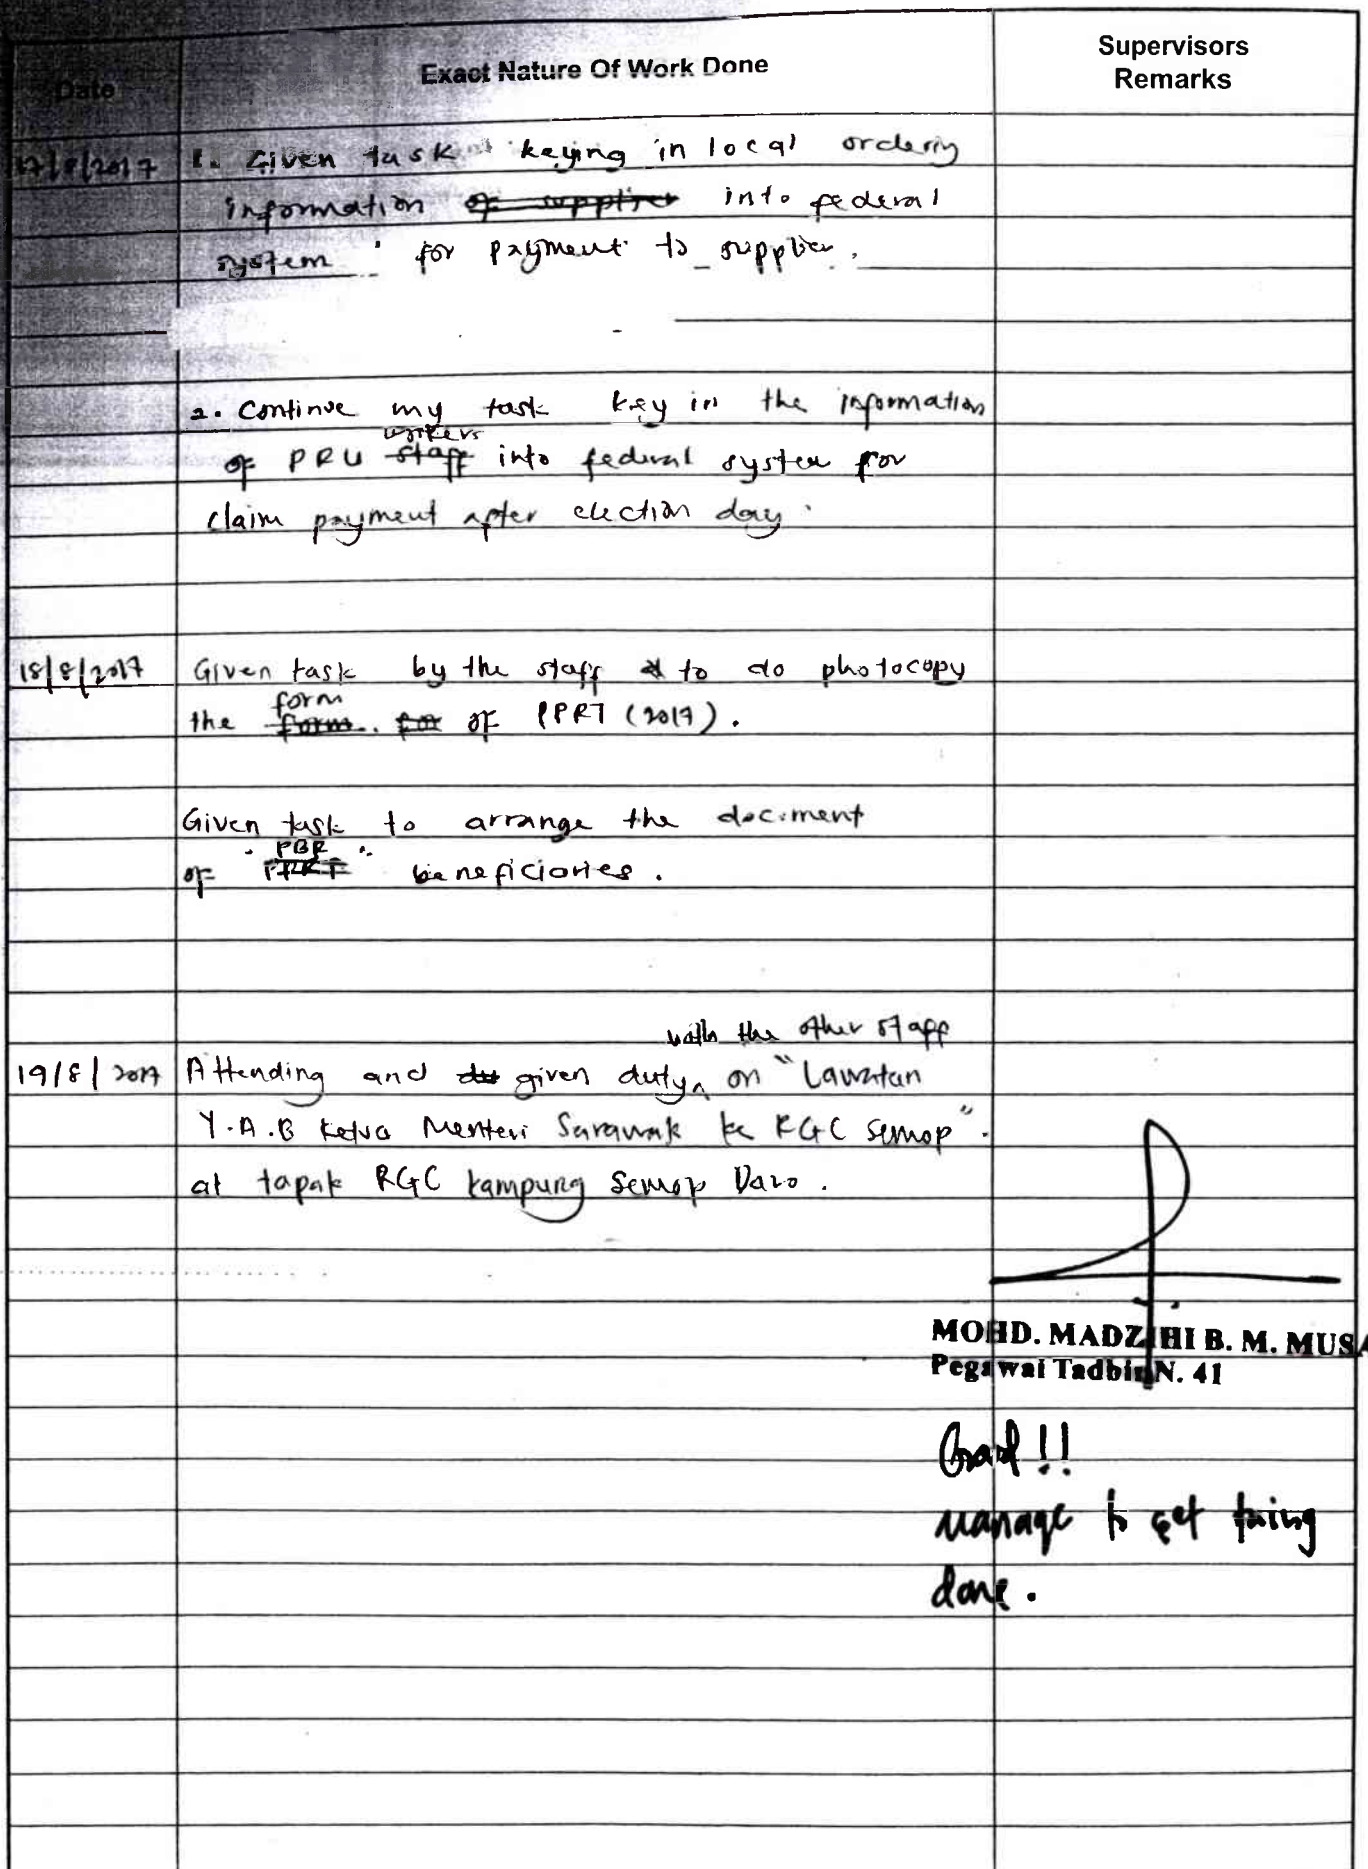 Date
Exact Nature Of Work Done
Supervisors
Remarks
17/8/2017
1. Given task keying in local ordering
information of supplier into federal
system for payment to supplier.
2. Continue my task key in the information
workers
of PRU staff into federal system for
claim payment after election day.
18/8/2017
Given task by the staff to do photocopy
form
the form. for of PPRT (2017).
Given task to arrange the document
"PBR"
of PPRT beneficiories.
with the other staff
19/8/2017
Attending and given duty on "Lawatan
Y.A.B Ketua Menteri Sarawak ke RGC Semop".
at tapak RGC Kampung Semop Daro.
MOHD. MADZIHI B. M. MUSA
Pegawai Tadbir N. 41
Good!!
manage to get thing
done.